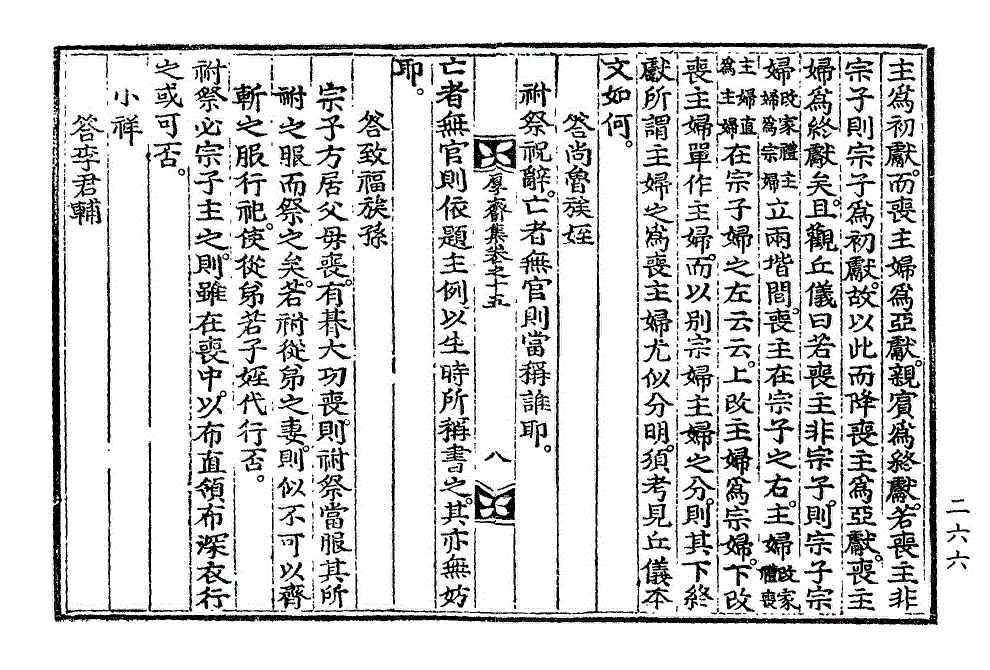 主爲初獻。而喪主婦爲亞獻。親賓爲終獻。若喪主非
宗子則宗子爲初獻。故以此而降喪主爲亞獻。喪主
婦爲終獻矣。且觀丘儀曰若喪主非宗子。則宗子宗
婦改家禮主婦爲宗婦立兩堦間。喪主在宗子之右。主婦改家禮喪
主婦直爲主婦在宗子婦之左云云。上改主婦爲宗婦。下改
喪主婦單作主婦。而以別宗婦主婦之分。則其下終
獻所謂主婦之爲喪主婦尤似分明。須考見丘儀本
文如何。
答尚魯族姪
祔祭祝辭。亡者無官則當稱誰耶。
厚齋集卷之十五
八
亡者無官則依題主例以生時所稱書之。其亦無妨
耶。
答致福族孫
宗子方居父母喪。有朞大功喪。則祔祭當服其所
祔之服而祭之矣。若祔從弟之妻。則似不可以齊
斬之服行祀。使從弟若子姪代行否。
祔祭必宗子主之。則雖在喪中。以布直領布深衣行
之或可否。
小祥
答李君輔
二六六